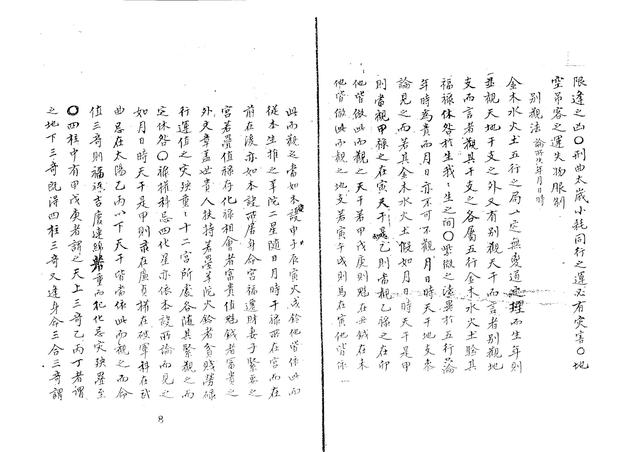 限逢之凶〇刑曲太歲小耗同行之運必有灾害〇地
空吊客之運失物服制
別觀法 論所灾年月日時
金木水火土五行之局一定無変道理而生年則
並觀天地干支之外又有別觀天干而言者別觀地
支而言者觀其干支之各屬五行金木水火土驗其
福祿休咎於生我我生之間〇紫微之法異於五行論
年時爲貴而月日亦不可不觀月日時天干地支叅
論見之而若其金木水火土假如月日時天干是甲
則當觀甲祿之在寅天干是乙則當觀乙祿之在卯
他皆做此而觀之天干甲戊庚則魁在丑鉞在未
他皆做此而觀之地支若寅午戌則馬在寅他皆依
此而觀之當如本設申子辰寅火戌鈴他皆依此而
從本生推之羊陀二星随日月時干祿所在宮而在
前在後亦如本設所居身命宮福遷財妻子緊要之
宮若疊值祿存化祿相會者富貴值魁鉞者富貴之
外文章蓋世貴人扶持若疊羊陀火鈴者貧賤勞碌
行運值之灾殃重重十二宮所處各随其所觀而以
定休咎〇祿權科忌四化星亦依本設所論而見之
如月日時天干是甲則祿在廉貞權在破軍科在武
曲忌在太陽乙丙以下天干皆當依此而觀之而命
值三奇則福添吉慶連綿若重而犯化忌灾殃疊至
〇四柱中有甲戊庚者謂之天上三奇乙丙丁者謂
之地下三奇既得四柱三奇又逢身命三合三奇謂
8